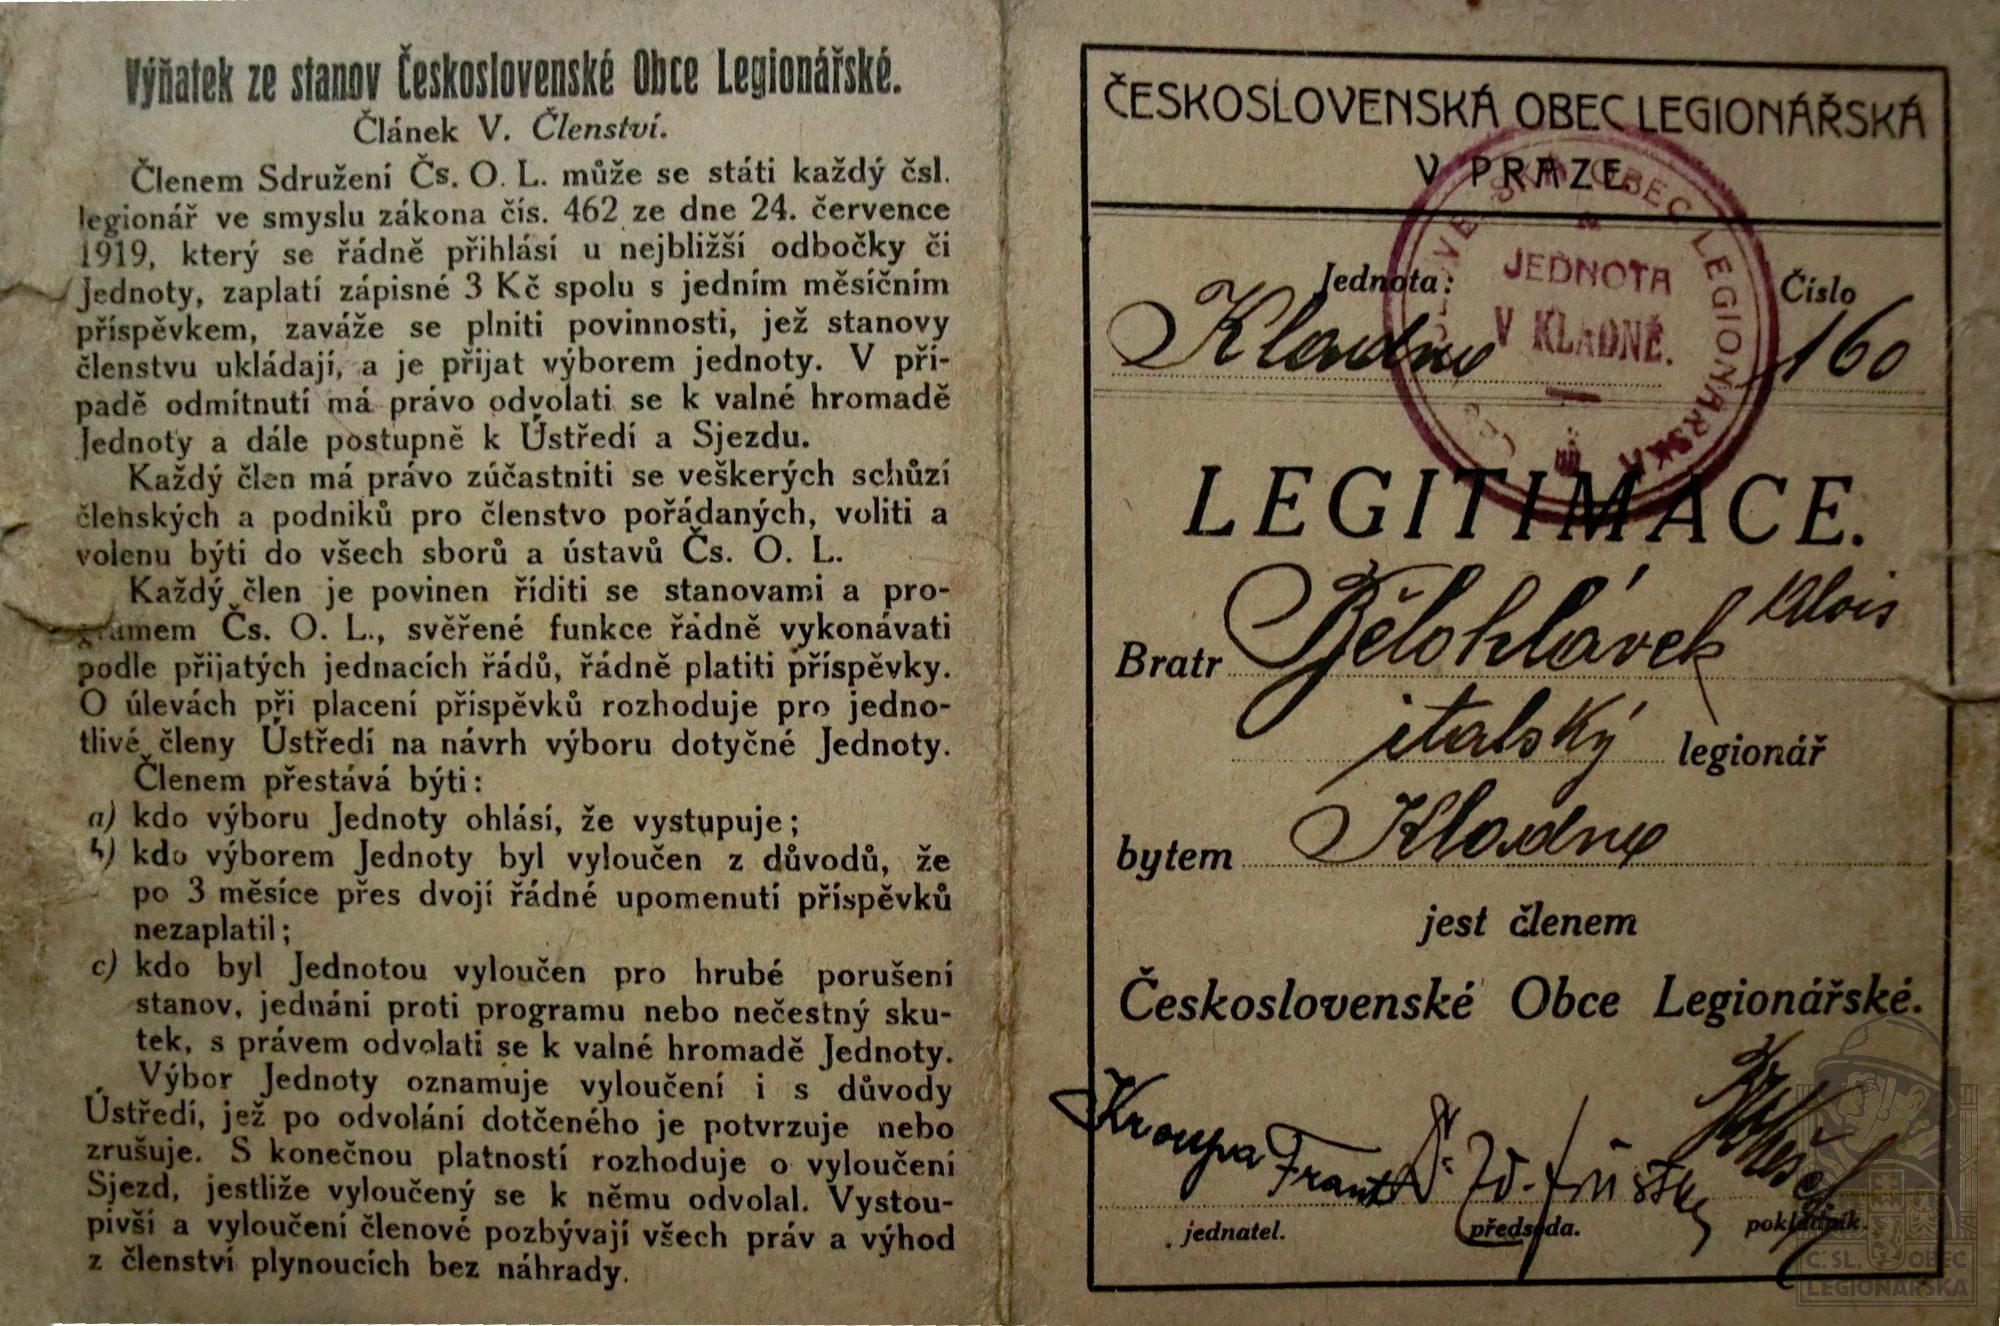 Výňatek ze stanov Československé Obce Legionářské.
Článek V. Členství.
Členem Sdružení Čs. O. L. může se státi každý čsl.
legionář ve smyslu zákona čís. 462 ze dne 24. července
1919, který se řádně přihlásí u nejbližší odbočky či
Jednoty, zaplatí zápisné 3 Kč spolu s jedním měsíčním
příspěvkem, zaváže se plniti povinnosti, jež stanovy
členstvu ukládají, a je přijat výborem jednoty. V pří-
padě odmítnutí má právo odvolati se k valné hromadě
Jednoty a dále postupně k Ústředí a Sjezdu.
Každý člen má právo zúčastniti se veškerých schůzí
členských a podniků pro členstvo pořádaných, voliti a
volenu býti do všech sborů a ústavů Čs. O. L.
Každý člen je povinen říditi se stanovami a pro-
gramem Čs. O. L., svěřené funkce řádně vykonávati
podle přijatých jednacích řádů, řádně platiti příspěvky.
O úlevách při placení příspěvků rozhoduje pro jedno-
tlivé členy Ústředí na návrh výboru dotyčné Jednoty.
Členem přestává býti:
a) kdo výboru Jednoty ohlásí, že vystupuje;
b) kdo výborem Jednoty byl vyloučen z důvodů, že
po 3 měsíce přes dvojí řádné upomenutí příspěvků
nezaplatil;
c) kdo byl Jednotou vyloučen pro hrubé porušení
stanov, jednání proti programu nebo nečestný sku-
tek, s právem odvolati se k valné hromadě Jednoty.
Výbor Jednoty oznamuje vyloučení i s důvody
Ústředí, jež po odvolání dotčeného je potvrzuje nebo
zrušuje. S konečnou platností rozhoduje o vyloučení
Sjezd, jestliže vyloučený se k němu odvolal. Vystou-
pivší a vyloučení členové pozbývají všech práv a výhod
z členství plynoucích bez náhrady.
ČESKOSLOVENSKÁ OBEC LEGIONÁŘSKÁ
V PRAZE
OBEC LEGIONÁŘSKÁ
JEDNOTA
V KLADNĚ.
Jednota: Číslo
Kladno 160
LEGITIMACE.
Bratr Bělohlávek Alois
italský legionář
bytem Kladno
jest členem
Československé Obce Legionářské.
Kroupa Frant.
jednatel. předseda. pokladník.
Č. SL. OBEC
LEGIONÁŘSKÁ